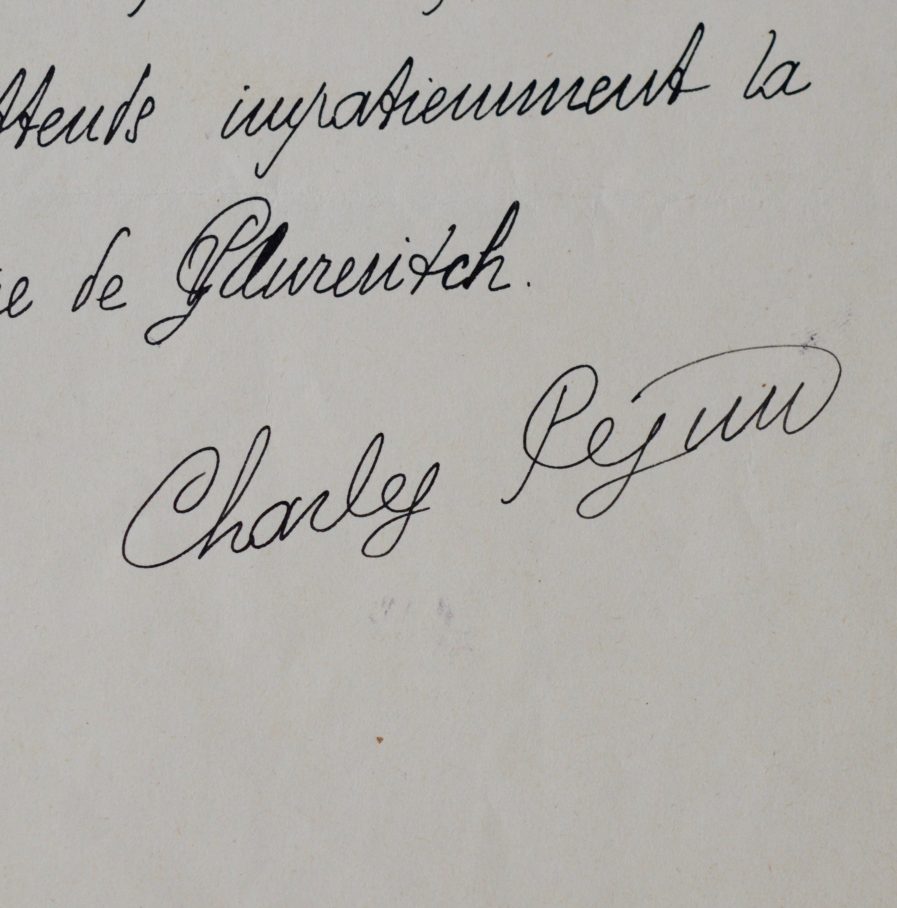 ttends impatiemment la
e de Gaurevitch.
Charley